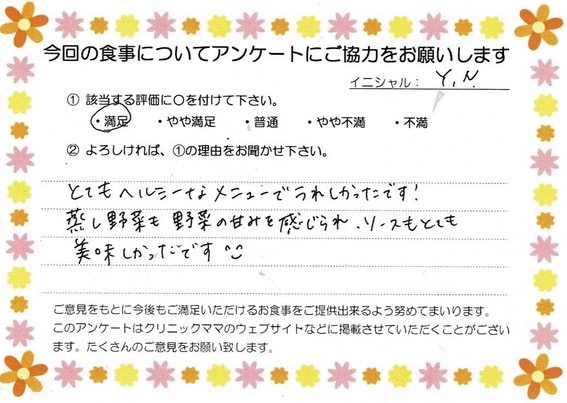 今回の食事についてアンケートにご協力をお願いします
イニシャル： Y.N
① 該当する評価に〇を付けて下さい。
・満足 ・やや満足 ・普通 ・やや不満 ・不満
② よろしければ、①の理由をお聞かせ下さい。
とてもヘルシーなメニューでうれしかったです！
蒸し野菜も野菜の甘みを感じられ、ソースもとても
美味しかったです
ご意見をもとに今後もご満足いただけるお食事をご提供出来るよう努めてまいります。
このアンケートはクリニックママのウェブサイトなどに掲載させていただくことがござい
ます。たくさんのご意見をお願い致します。